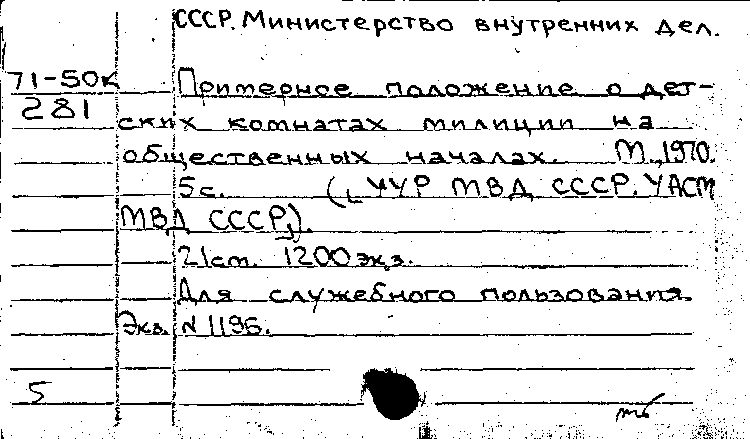 СССР. Министерство внутренних дел.
71-50к
281
Примерное положение о дет-
ских комнатах милиции на
общественных началах. М., 1970.
5 с. ([УУР МВД СССР. УАСМ
МВД СССР]).
21 см. 1200 экз.
Для служебного пользования
Экз. N 1196.
5